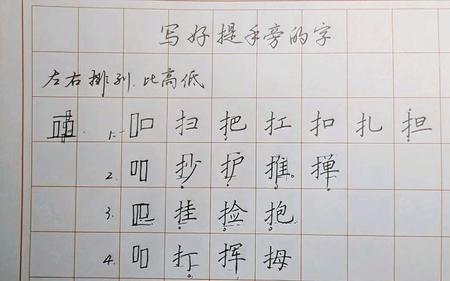 写好提手旁的字
左右排列.比高低
1. 扫 把 扛 扣 扎 担
2. 抄 护 推 掸
3. 挂 捡 抱
4. 打 挥 拇